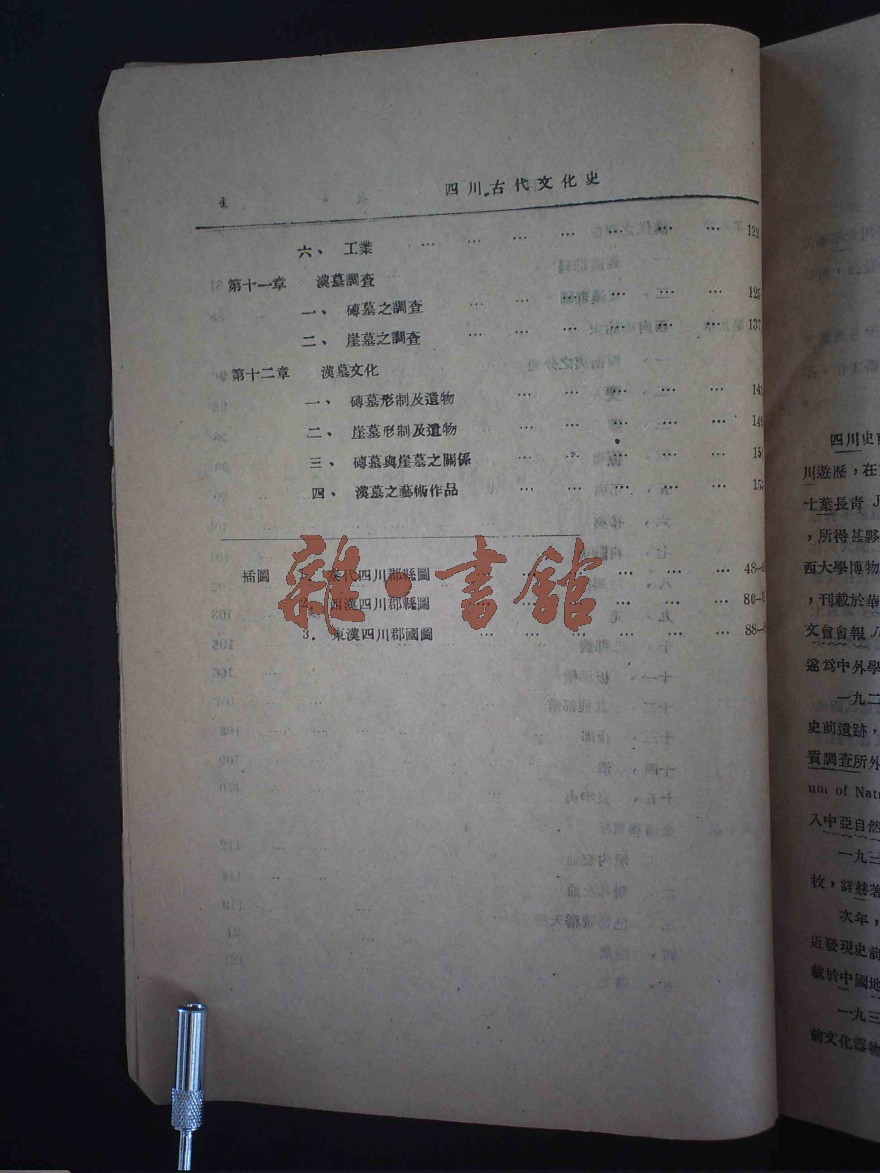 4 四川古代文化史
六、 工業 … … … … … … … 122
第十一章 漢墓調查
一、 磚墓之調查 … … … … … … 125
二、 崖墓之調查 … … … … … … 137
第十二章 漢墓文化
一、 磚墓形制及遺物 … … … … …
二、 崖墓形制及遺物 … … … … …
三、 磚墓與崖墓之關係 … … … … …
四、 漢墓之藝術作品 … … … … …
插圖 1. 秦代四川郡縣圖 … … … … … … 48
2. 西漢四川郡縣圖 … … … … … … 80
3. 東漢四川郡國圖 … … … … … … 88
雜·書館
四川史
川遊歷，在
士葉長青 J
，所得甚夥
西大學博物
，刊載於華
文會會報 J
遂為中外學
一九二
史前遺跡，
質調查所外
um of Nat
入中亞自然
一九三
枚，詳
次年，
近發現史前
載於中國地
一九三
前文化器物